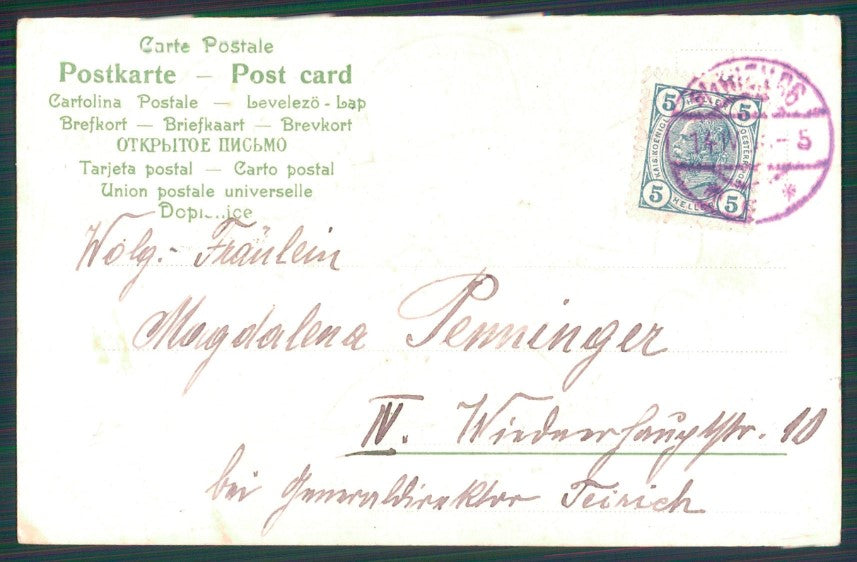 Carte Postale
Postkarte — Post card
Cartolina Postale — Levelező - Lap
Brefkort — Briefkaart — Brevkort
ОТКРЫТОЕ ПИСЬМО
Tarjeta postal — Carto postal
Union postale universelle
5 5
KAIS. KOENIGL. OESTERR.
5 HELLER 5
WIEN 66
14 IV 5
* *
Wolg. Fräulein
Magdalena Penninger
IV. Wiednerhauptstr. 10
bei Generaldirektor Teirich